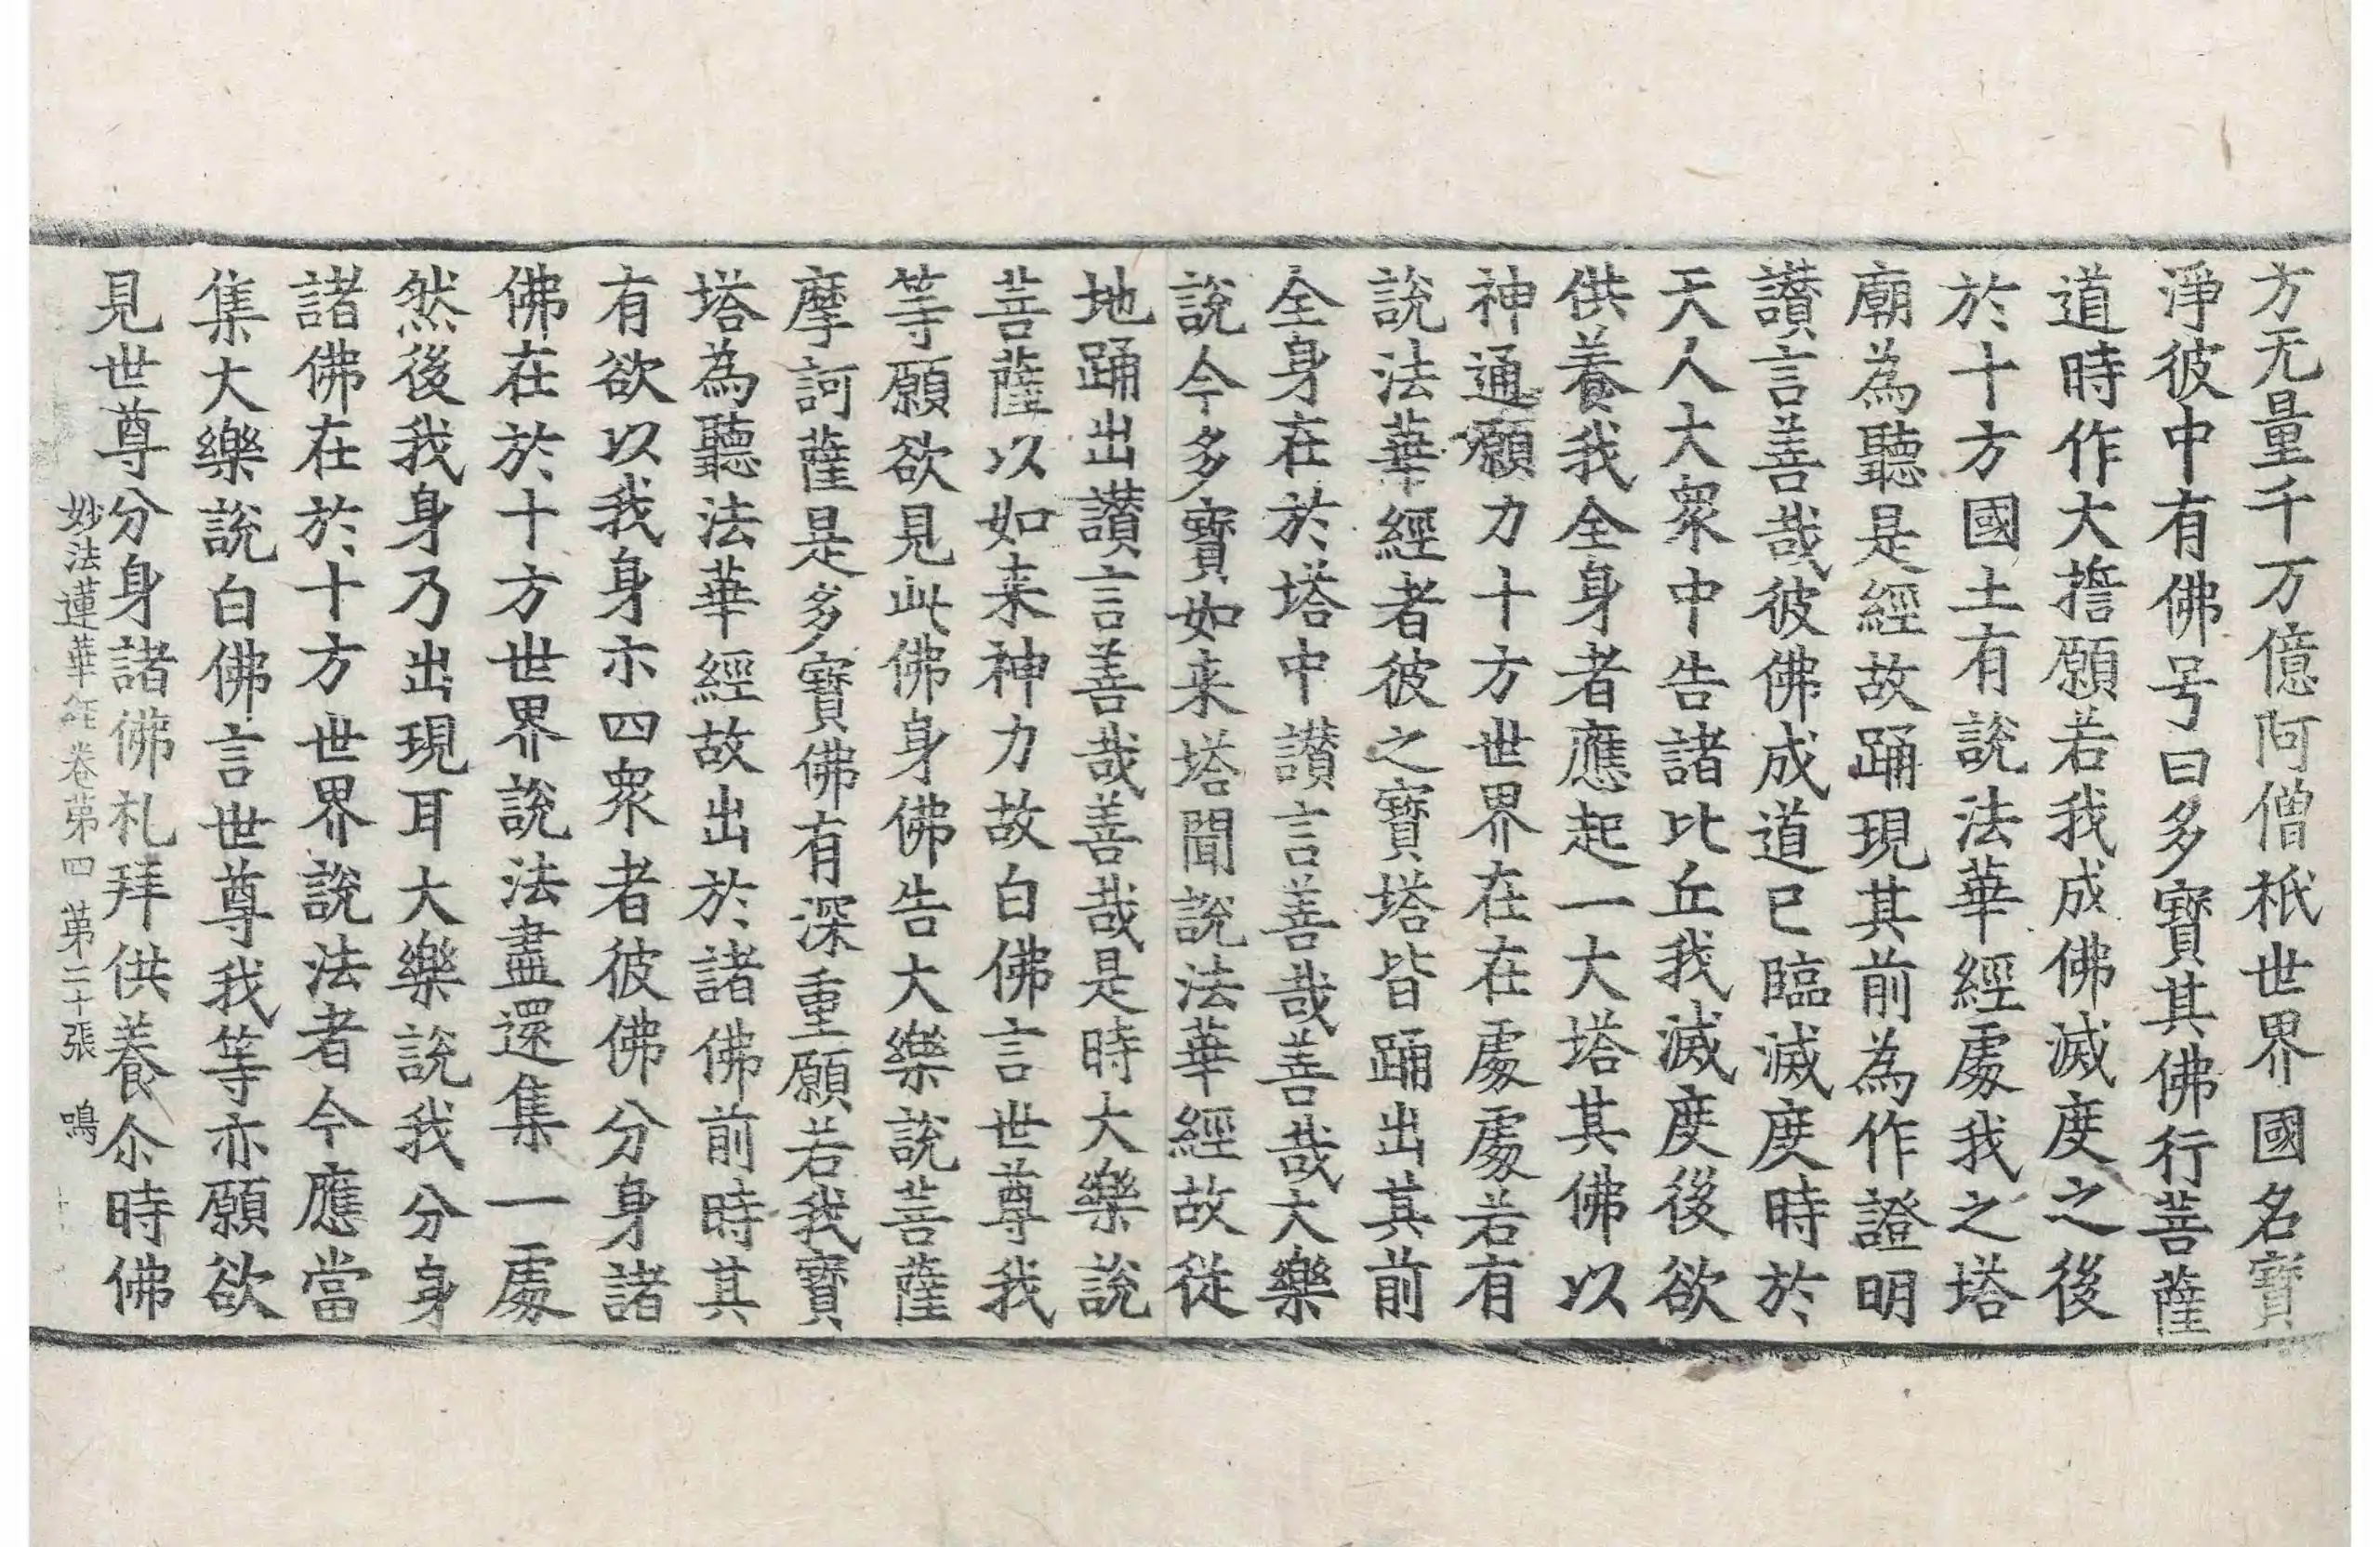 方无量千万億阿僧祇世界國名寶
淨彼中有佛号曰多寶其佛行菩薩
道時作大擔願若我成佛滅度之後
於十方國土有說法華經處我之塔
廟為聽是經故踊現其前為作證明
讃言善哉彼佛成道已臨滅度時於
天人大衆中告諸比丘我滅度後欲
供養我全身者應起一大塔其佛以
神通願力十方世界在在處處若有
說法華經者彼之寶塔皆踊出其前
全身在於塔中讃言善哉善哉大樂
說今多寶如来塔聞說法華經故從
地踊出讃言善哉善哉是時大樂說
菩薩以如来神力故白佛言世尊我
等願欲見此佛身佛告大樂說菩薩
摩訶薩是多寶佛有深重願若我寶
塔為聽法華經故出於諸佛前時其
有欲以我身示四衆者彼佛分身諸
佛在於十方世界說法盡還集一處
然後我身乃出現耳大樂說我分身
諸佛在於十方世界說法者今應當
集大樂說白佛言世尊我等亦願欲
見世尊分身諸佛礼拜供養尒時佛
妙法蓮華經卷第四 第二十張 鳴